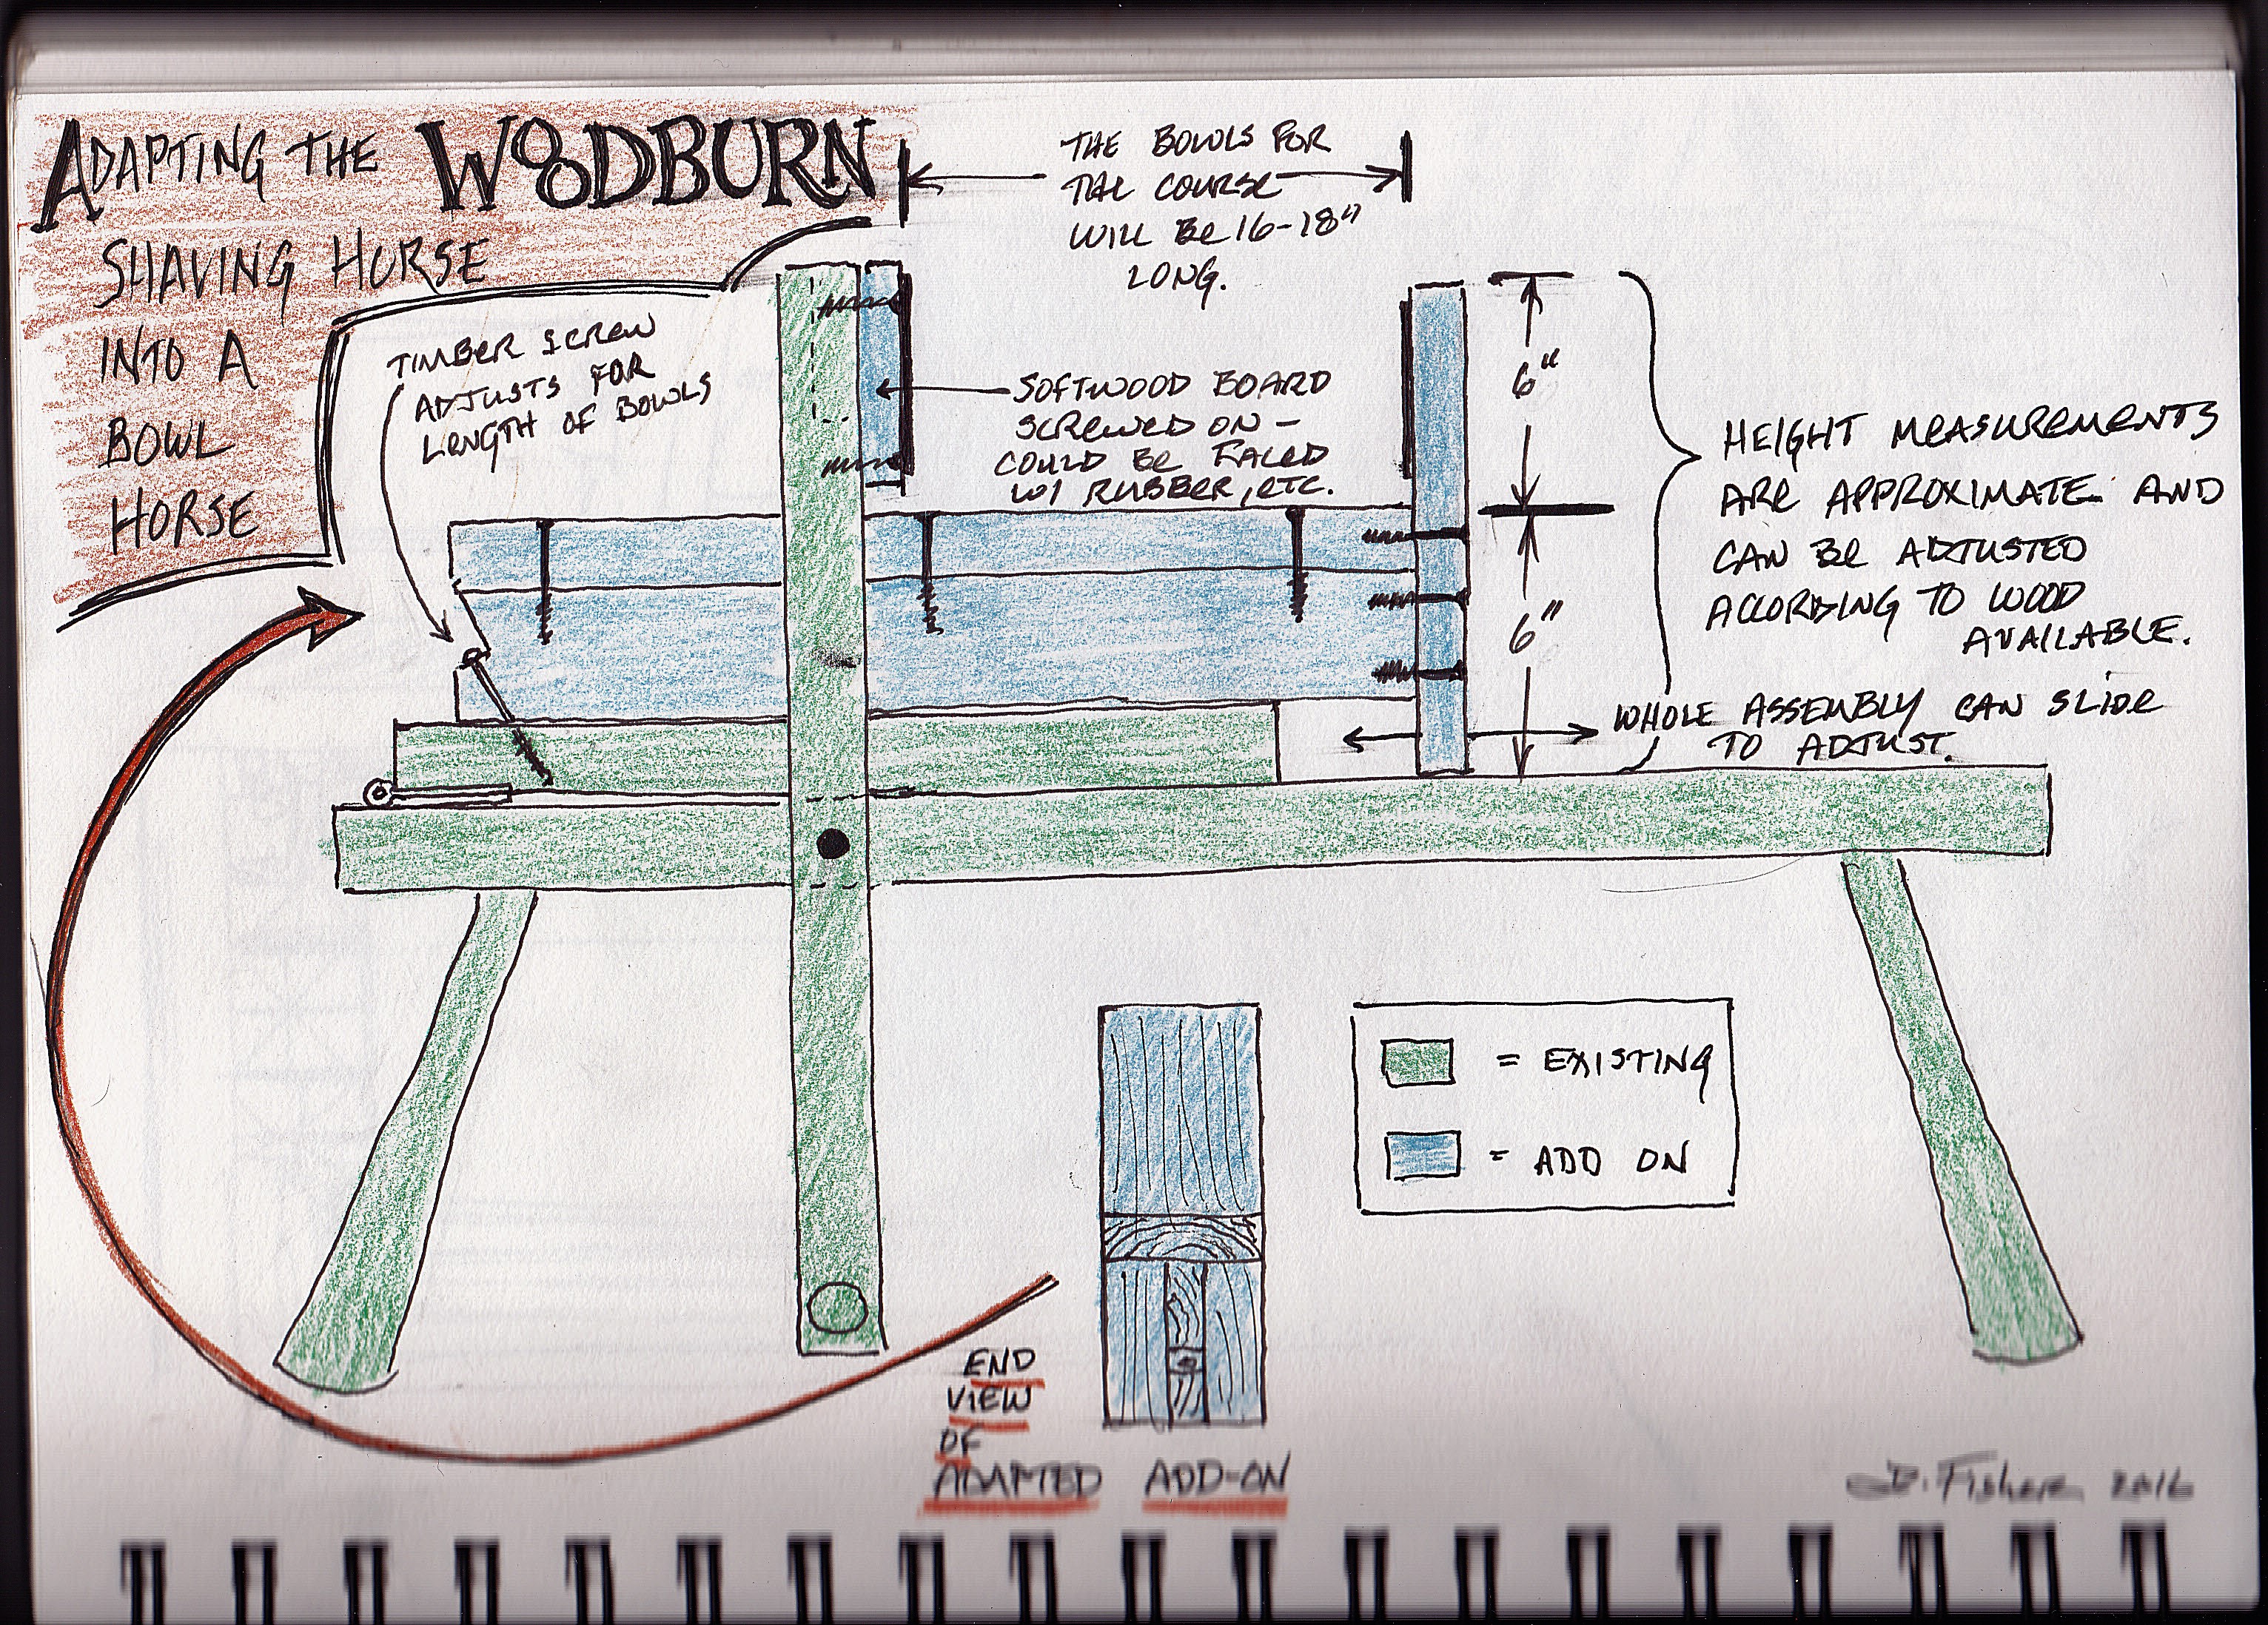 ADAPTING THE WOODBURN
SHAVING HORSE
INTO A
BOWL
HORSE
THE BOWLS FOR
THE COURSE
WILL BE 16-18"
LONG.
TIMBER SCREW
ADJUSTS FOR
LENGTH OF BOWLS
SOFTWOOD BOARD
SCREWED ON -
COULD BE FACED
W/ RUBBER, ETC.
6"
6"
HEIGHT MEASUREMENTS
ARE APPROXIMATE AND
CAN BE ADJUSTED
ACCORDING TO WOOD
AVAILABLE.
WHOLE ASSEMBLY CAN SLIDE
TO ADJUST.
= EXISTING
= ADD ON
END
VIEW
OF
ADAPTED ADD-ON
D. Fisher 2016